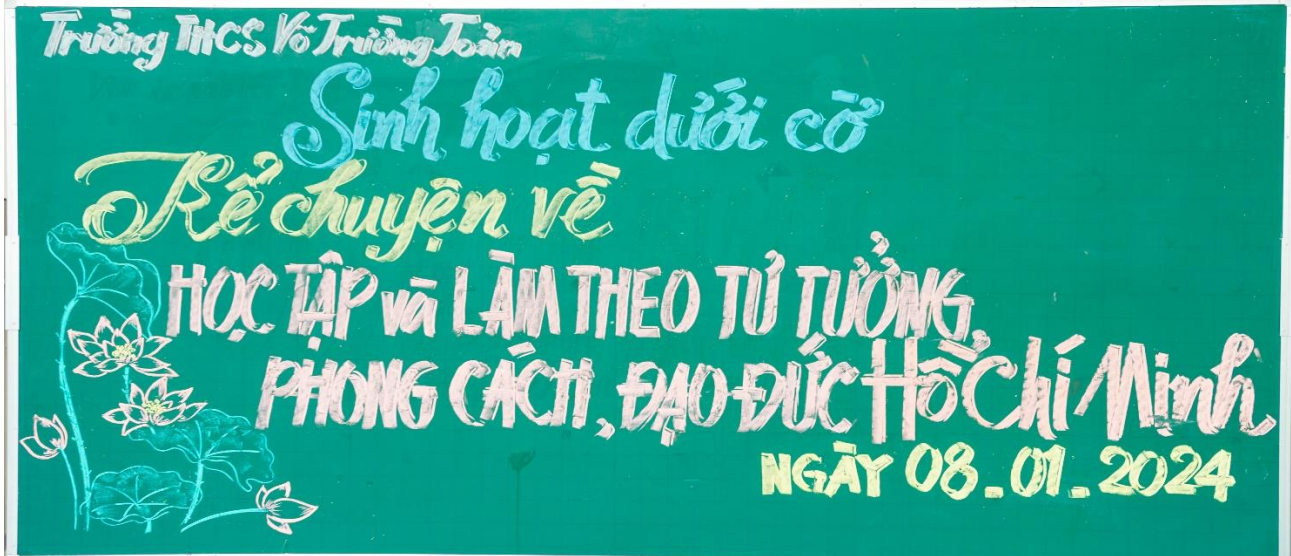 Trường THCS Võ Trường Toản
Sinh hoạt dưới cờ
Kể chuyện về
HỌC TẬP và LÀM THEO TƯ TƯỞNG,
PHONG CÁCH, ĐẠO ĐỨC Hồ Chí Minh
NGÀY 08.01.2024